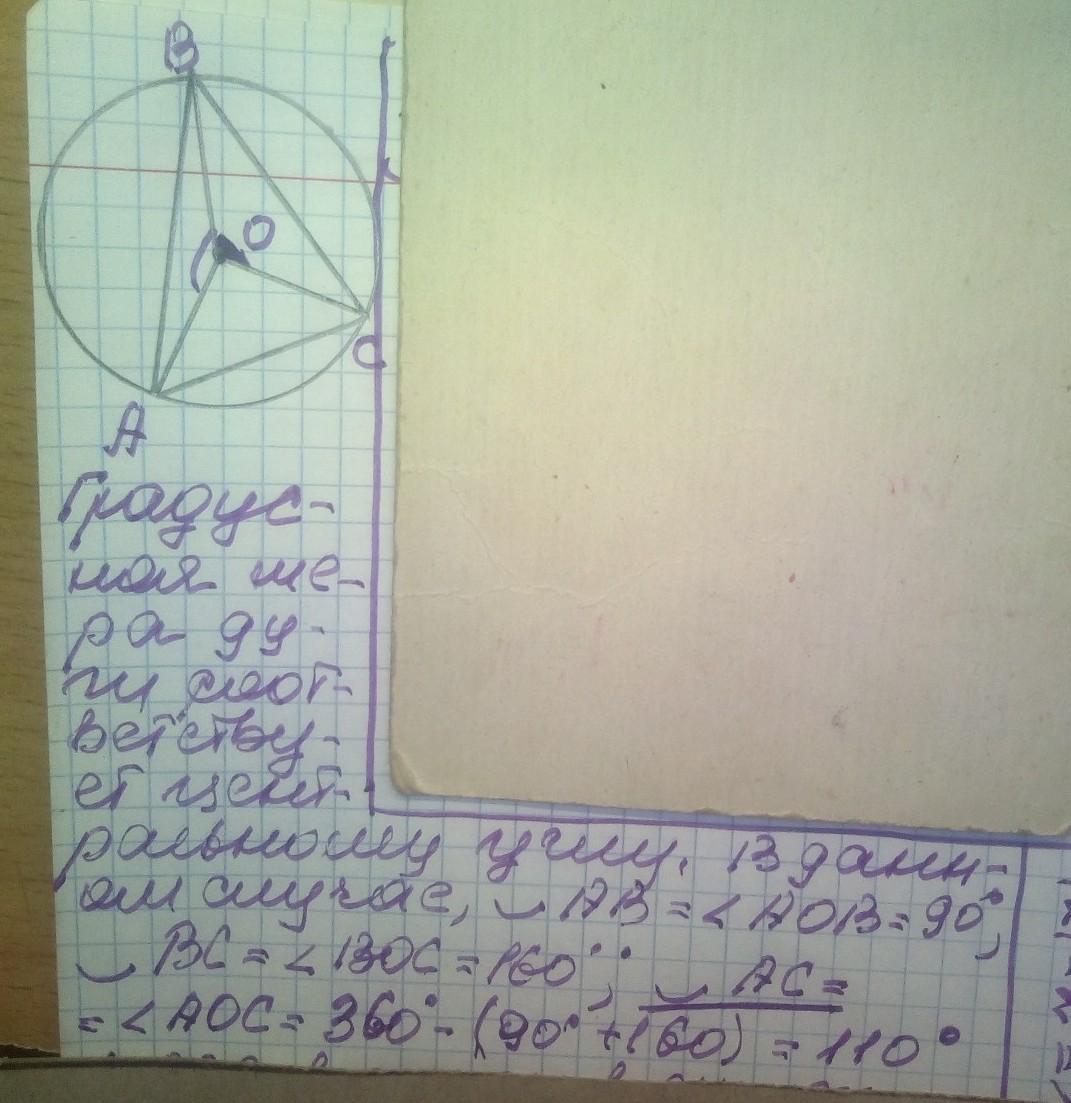 B
O
C
A
Градус-
ная ме-
ра ду-
ги соот-
ветству-
ет цент-
ральному углу. В данн-
ом случае, ◡ AB = < AOB = 90°,
◡ BC = < BOC = 160°, ◡ AC =
= < AOC = 360° - (90° + 160) = 110°